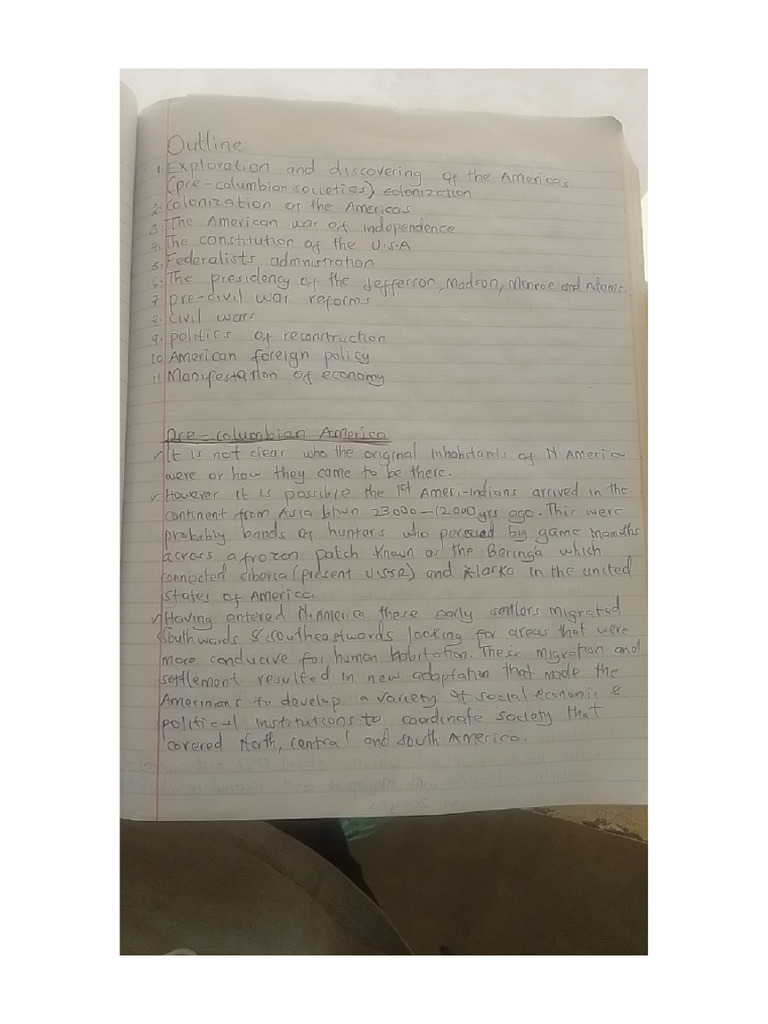 Outline
1. Exploration and discovering of the Americas
(pre-columbian societies) colonization
2. Colonization of the Americas
3. The American war of independence
4. The constitution of the U.S.A
5. Federalists admnistration
6. The presidency of the Jefferson, Madson, Monroe and Adams.
7. pre-civil war reforms
8. Civil wars
9. politics of reconstruction
10 American foreign policy
11 Manifestation of economy
Pre-columbian America
✓ It is not clear who the original inhabitants of N. America
were or how they came to be there.
✓ However it is possible the 1st Ameri-indians arrived in the
continent from Asia btwn 23000-12000yrs ago. This were
probably bands of hunters who persued big game mamths
across a frozen patch known as the Beringa which
connected ciberia (present U.S.S.R) and Alaska in the united
states of America.
✓ Having entered N. America these early settlers migrated
southwards & southeastwards looking for areas that were
more conducive for human habitation. These migration and
settlement resulted in new adaptation that made the
Amerinians to develop a variety of social economic &
political institutions to coordinate society that
covered North, central and south America.